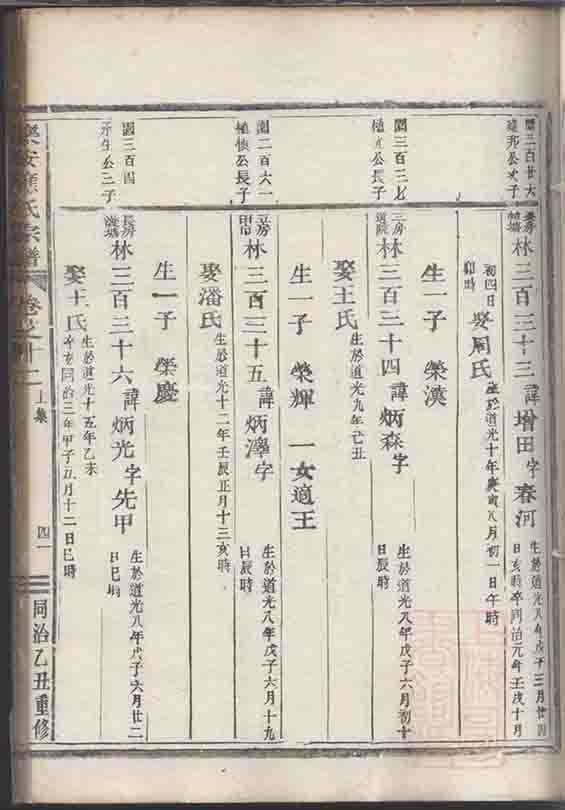 園三百廿六
建邦公次子
長房
林三百三十三諱增田字春河
生於道光八年戊子三月廿四
日亥時卒同治元年壬戌十月
初四日
卯時
娶周氏
生於道光十年庚寅八月初一日午時
生一子 榮漢
園三百三七
植立公長子
三房
道院
林三百三十四諱炳森字
生於道光八年戊子六月初十
日辰時
娶王氏
生於道光九年己丑
生一子 榮輝 一女適王
園二百六一
植楨公長子
林三百三十五諱炳澤字
生於道光八年戊子六月十九
日辰時
娶潘氏
生於道光十二年壬辰正月十三亥時
生一子 榮慶
園三百四
公二子
長房
林三百三十六諱炳光字先甲
生於道光八年戊子六月廿二
日巳時
娶王氏
生於道光十五年乙未
卒於同治三年甲子五月十二日巳時
樂安蔣氏宗譜
卷之十二
上集
四一
同治乙丑重修